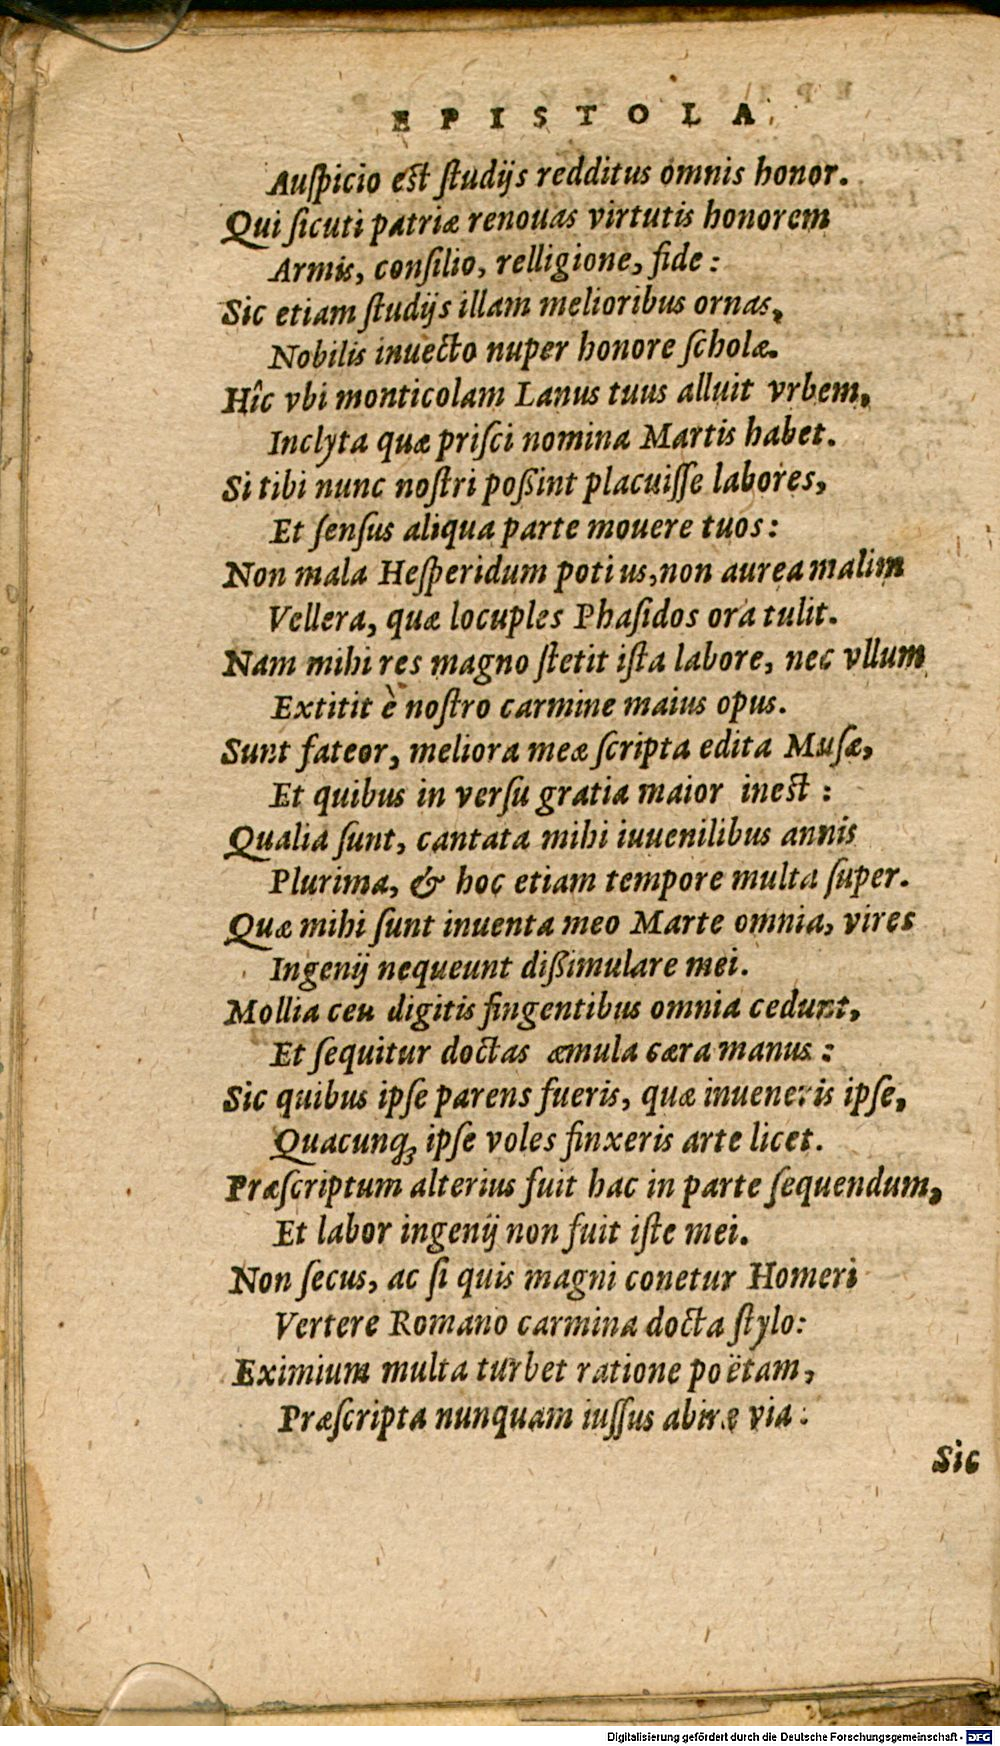 EPISTOLA
Auſpicio eſt ſtudijs redditus omnis honor.
Qui ſicuti patriæ renouas virtutis honorem
Armis, conſilio, relligione, fide:
Sic etiam ſtudijs illam melioribus ornas,
Nobilis inuecto nuper honore ſcholæ.
Hîc vbi monticolam Lanus tuus alluit vrbem,
Inclyta quæ priſci nomina Martis habet.
Si tibi nunc noſtri poßint placuiſſe labores,
Et ſenſus aliqua parte mouere tuos:
Non mala Heſperidum potius, non aurea malim
Vellera, quæ locuples Phaſidos ora tulit.
Nam mihi res magno ſtetit iſta labore, nec vllum
Extitit è noſtro carmine maius opus.
Sunt fateor, meliora meæ ſcripta edita Muſæ,
Et quibus in verſu gratia maior ineſt:
Qualia ſunt, cantata mihi iuuenilibus annis
Plurima, & hoc etiam tempore multa ſuper.
Quæ mihi ſunt inuenta meo Marte omnia, vires
Ingenij nequeunt dißimulare mei.
Mollia ceu digitis fingentibus omnia cedunt,
Et ſequitur doctas æmula cæra manus:
Sic quibus ipſe parens fueris, quæ inueneris ipſe,
Quacunq; ipſe voles finxeris arte licet.
Præſcriptum alterius fuit hac in parte ſequendum,
Et labor ingenij non fuit iſte mei.
Non ſecus, ac ſi quis magni conetur Homeri
Vertere Romano carmina docta ſtylo:
Eximium multa turbet ratione poëtam,
Præſcripta nunquam iuſſus abire via:
Sic
Digitalisierung gefördert durch die Deutsche Forschungsgemeinschaft - DFG